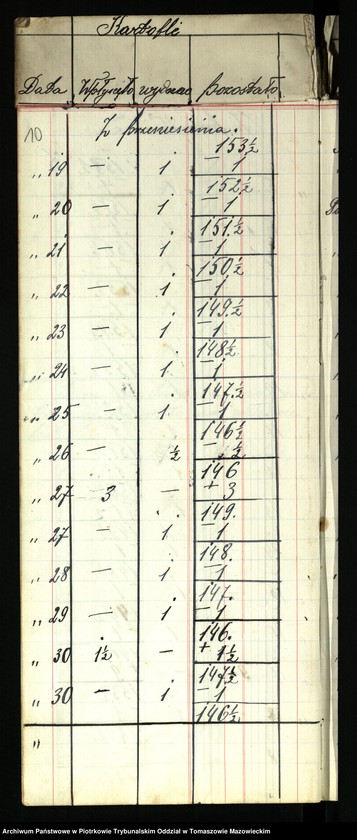 Kartofli
Data Wpłynęło wydano pozostało
10 Z przeniesienia. 153½
„ 19 — 1 — 1
152½
„ 20 — 1 — 1
151½
„ 21 — 1 — 1
150½
„ 22 — 1 — 1
149½
„ 23 — 1 — 1
148½
„ 24 — 1 — 1
147½
„ 25 — 1 — 1
146½
„ 26 — ½ — ½
146
„ 27 3 — + 3
149.
„ 27 — 1 — 1
148.
„ 28 — 1 — 1
147.
„ 29 — 1 — 1
146.
„ 30 1½ — + 1½
147½
„ 30 — 1 — 1
146½
„
Archiwum Państwowe w Piotrkowie Trybunalskim Oddział w Tomaszowie Mazowieckim